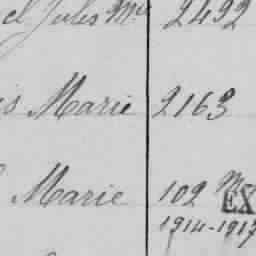 el Jules Mce 2492
is Marie 2163
Marie 102
EX
1914-1917